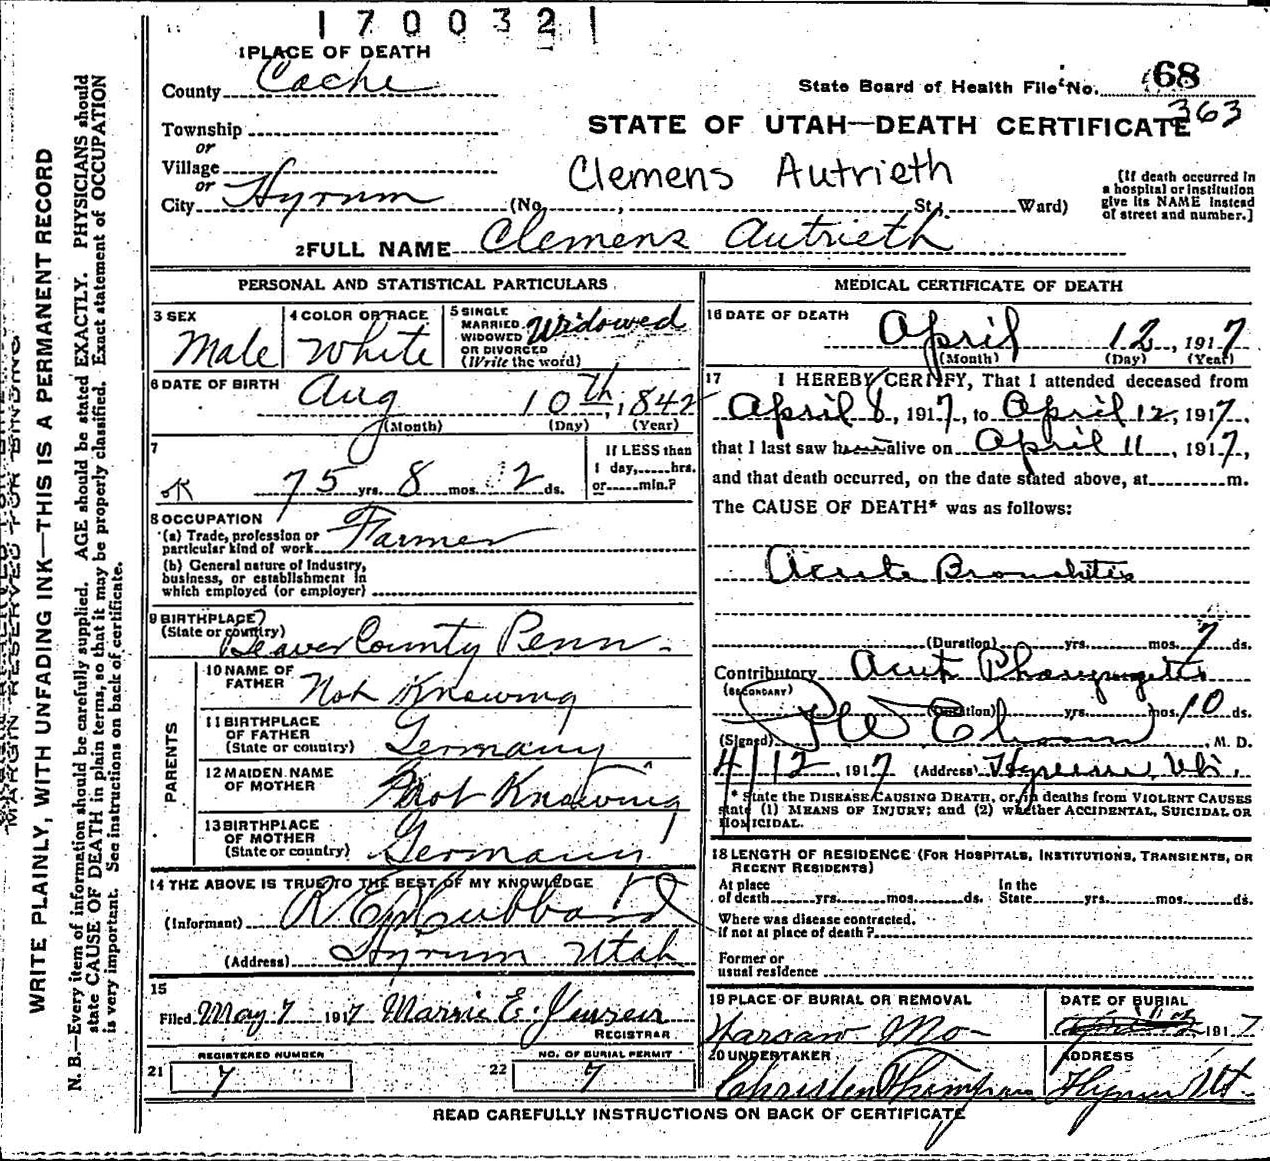 1 7 0 0 3 2 1
1 PLACE OF DEATH
County Cache
State Board of Health File No. 68
363
Township
or
Village
or
City Hyrum (No. , St.; Ward)
STATE OF UTAH—DEATH CERTIFICATE
Clemens Autrieth
[If death occurred in
a hospital or institution
give its NAME instead
of street and number.]
2 FULL NAME Clemens Autrieth
PERSONAL AND STATISTICAL PARTICULARS
3 SEX
Male
4 COLOR OR RACE
White
5 SINGLE
MARRIED
WIDOWED
OR DIVORCED
(Write the word)
Widowed
6 DATE OF BIRTH
Aug 10th, 1842
(Month) (Day) (Year)
7
OK
75 yrs. 8 mos. 2 ds.
If LESS than
1 day, hrs.
or min.?
8 OCCUPATION
(a) Trade, profession or
particular kind of work Farmer
(b) General nature of Industry,
business, or establishment in
which employed (or employer)
9 BIRTHPLACE
(State or country)
Beaver County Penn.
PARENTS
10 NAME OF
FATHER
Not Knowing
11 BIRTHPLACE
OF FATHER
(State or country)
Germany
12 MAIDEN NAME
OF MOTHER
Not Knowing
13 BIRTHPLACE
OF MOTHER
(State or country)
Germany
14 THE ABOVE IS TRUE TO THE BEST OF MY KNOWLEDGE
(Informant) R E Hubbard
(Address) Hyrum Utah
15
Filed May 7 1917
REGISTRAR
REGISTERED NUMBER
21 7
NO. OF BURIAL PERMIT
22 7
MEDICAL CERTIFICATE OF DEATH
16 DATE OF DEATH
April 12, 1917
(Month) (Day) (Year)
17 I HEREBY CERTIFY, That I attended deceased from
April 8, 1917, to April 12, 1917.
that I last saw him alive on April 11, 1917,
and that death occurred, on the date stated above, at m.
The CAUSE OF DEATH* was as follows:
Acute Bronchitis
(Duration) yrs. mos. 7 ds.
Contributory Acute Pharyngitis
(SECONDARY)
(Duration) yrs. mos. 10 ds.
(Signed) , M. D.
4/12, 1917 (Address) Hyrum, Ut.
* State the DISEASE CAUSING DEATH, or, in deaths from VIOLENT CAUSES
state (1) MEANS OF INJURY; and (2) whether ACCIDENTAL, SUICIDAL OR
HOMICIDAL.
18 LENGTH OF RESIDENCE (FOR HOSPITALS, INSTITUTIONS, TRANSIENTS, OR
RECENT RESIDENTS)
At place
of death yrs. mos. ds.
In the
State yrs. mos. ds.
Where was disease contracted,
if not at place of death?
Former or
usual residence
19 PLACE OF BURIAL OR REMOVAL
Warsaw Mo
DATE OF BURIAL
1917
20 UNDERTAKER
Christen Thompson
ADDRESS
Hyrum Ut.
READ CAREFULLY INSTRUCTIONS ON BACK OF CERTIFICATE
MARGIN RESERVED FOR BINDING
WRITE PLAINLY, WITH UNFADING INK—THIS IS A PERMANENT RECORD
N. B.—Every item of information should be carefully supplied. AGE should be stated EXACTLY. PHYSICIANS should
state CAUSE OF DEATH in plain terms, so that it may be properly classified. Exact statement of OCCUPATION
is very important. See instructions on back of certificate.